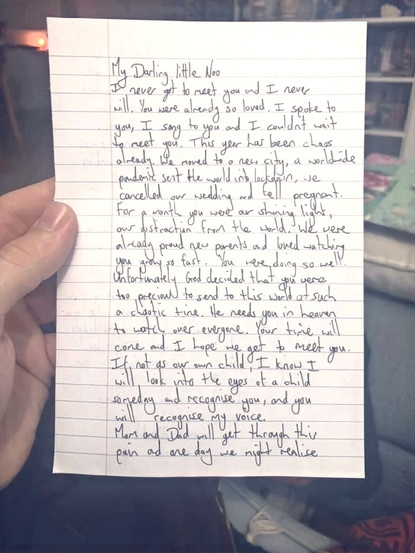 My Darling little Noo
I never got to meet you and I never
will. You were already so loved. I spoke to
you, I sang to you and I couldnt wait
to meet you. This year has been chaos
already. We moved to a new city, a worldwide
pandemic sent the world into lockdown, we
cancelled our wedding and fell pregnant.
For a month you were our shining light,
our distraction from the world. We were
already proud new parents and loved watching
you grow so fast. You were doing so well.
Unfortunately God decided that you were
too precious to send to this world at such
a chaotic time. He needs you in heaven
to watch over everyone. Your time will
come and I hope we get to meet you.
If not as our own child, I know I
will look into the eyes of a child
someday and recognise you, and you
will recognise my voice.
Mom and Dad will get through this
pain and one day we might realise